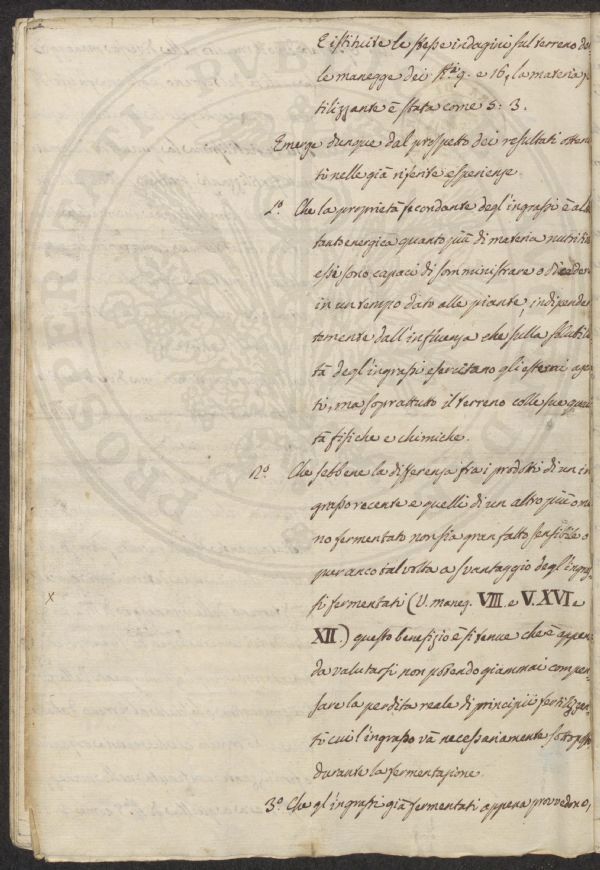 E istituite le stesse indagini sul terreno de
le manegge dei N.ri 9. e 16, la materia
tilizzante è stata come 5: 3.
Emerge dunque dal prospetto dei resultati otten
ti nelle già riferite esperienze.
1.o Che la proprietà fecondante degl'ingrassi è al
tanto energica quanto più di materia nutriti
essi sono capaci di somministrare o di ceder
in un tempo dato alle piante, indipende
temente dall'influenza che sulla solubili
tà degl'ingrassi esercitano gli esterni agen
ti, ma soprattutto il terreno colle sue quali
tà fisiche e chimiche.
2.o Che sebbene la differenza fra i prodotti di un in
grasso recente e quelli di un altro più o me
no fermentato non sia gran fatto sensibile o
per anco talvolta a svantaggio degl'ingras
si fermentati (V. maneg. VIII. e V. XVI e
XII.) questo benefizio è sì tenue che è appen
da valutarsi non potendo giammai compen
sare la perdita reale di principii fertilizzan
ti cui l'ingrasso và necessariamente sottopos
durante la fermentazione.
3.o Che gl'ingrassi già fermentati appena provvedono,
x
PROSPERITATI PUB